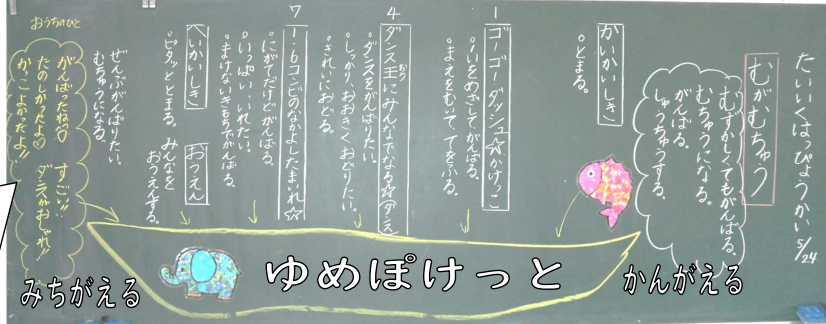 たいいくはっぴょうかい 5/24
むがむちゅう
むずかしくてもがんばる。
むちゅうになる。
がんばる。
しゅうちゅうする。
かいかいしき
。とまる。
1 ゴーゴーダッシュ☆かけっこ
。1いをめざしてがんばる。
。まえをむいて、てをふる。
4 ダンス王にみんなでなる☆(ダンス)
。ダンスをがんばりたい。
。しっかり、おおきくおどりたい。
。きれいにおどる。
7 1・6コンビのなかよしたまいれ☆
。にがてだけどがんばる。
。いっぱい、いれたい。
。まけないきもちでがんばる。
へいかいしき
。ピタッととまる。
おうえん
みんなを
おうえんする。
ぜんぶがんばりたい。
むちゅうになる。
おうちのひと
がんばったね♡
たのしかったよ♡
かっこよかったよ!!
すごい!!
ダンスがおしゃれ!!
かんがえる
ゆめぽけっと
みちがえる